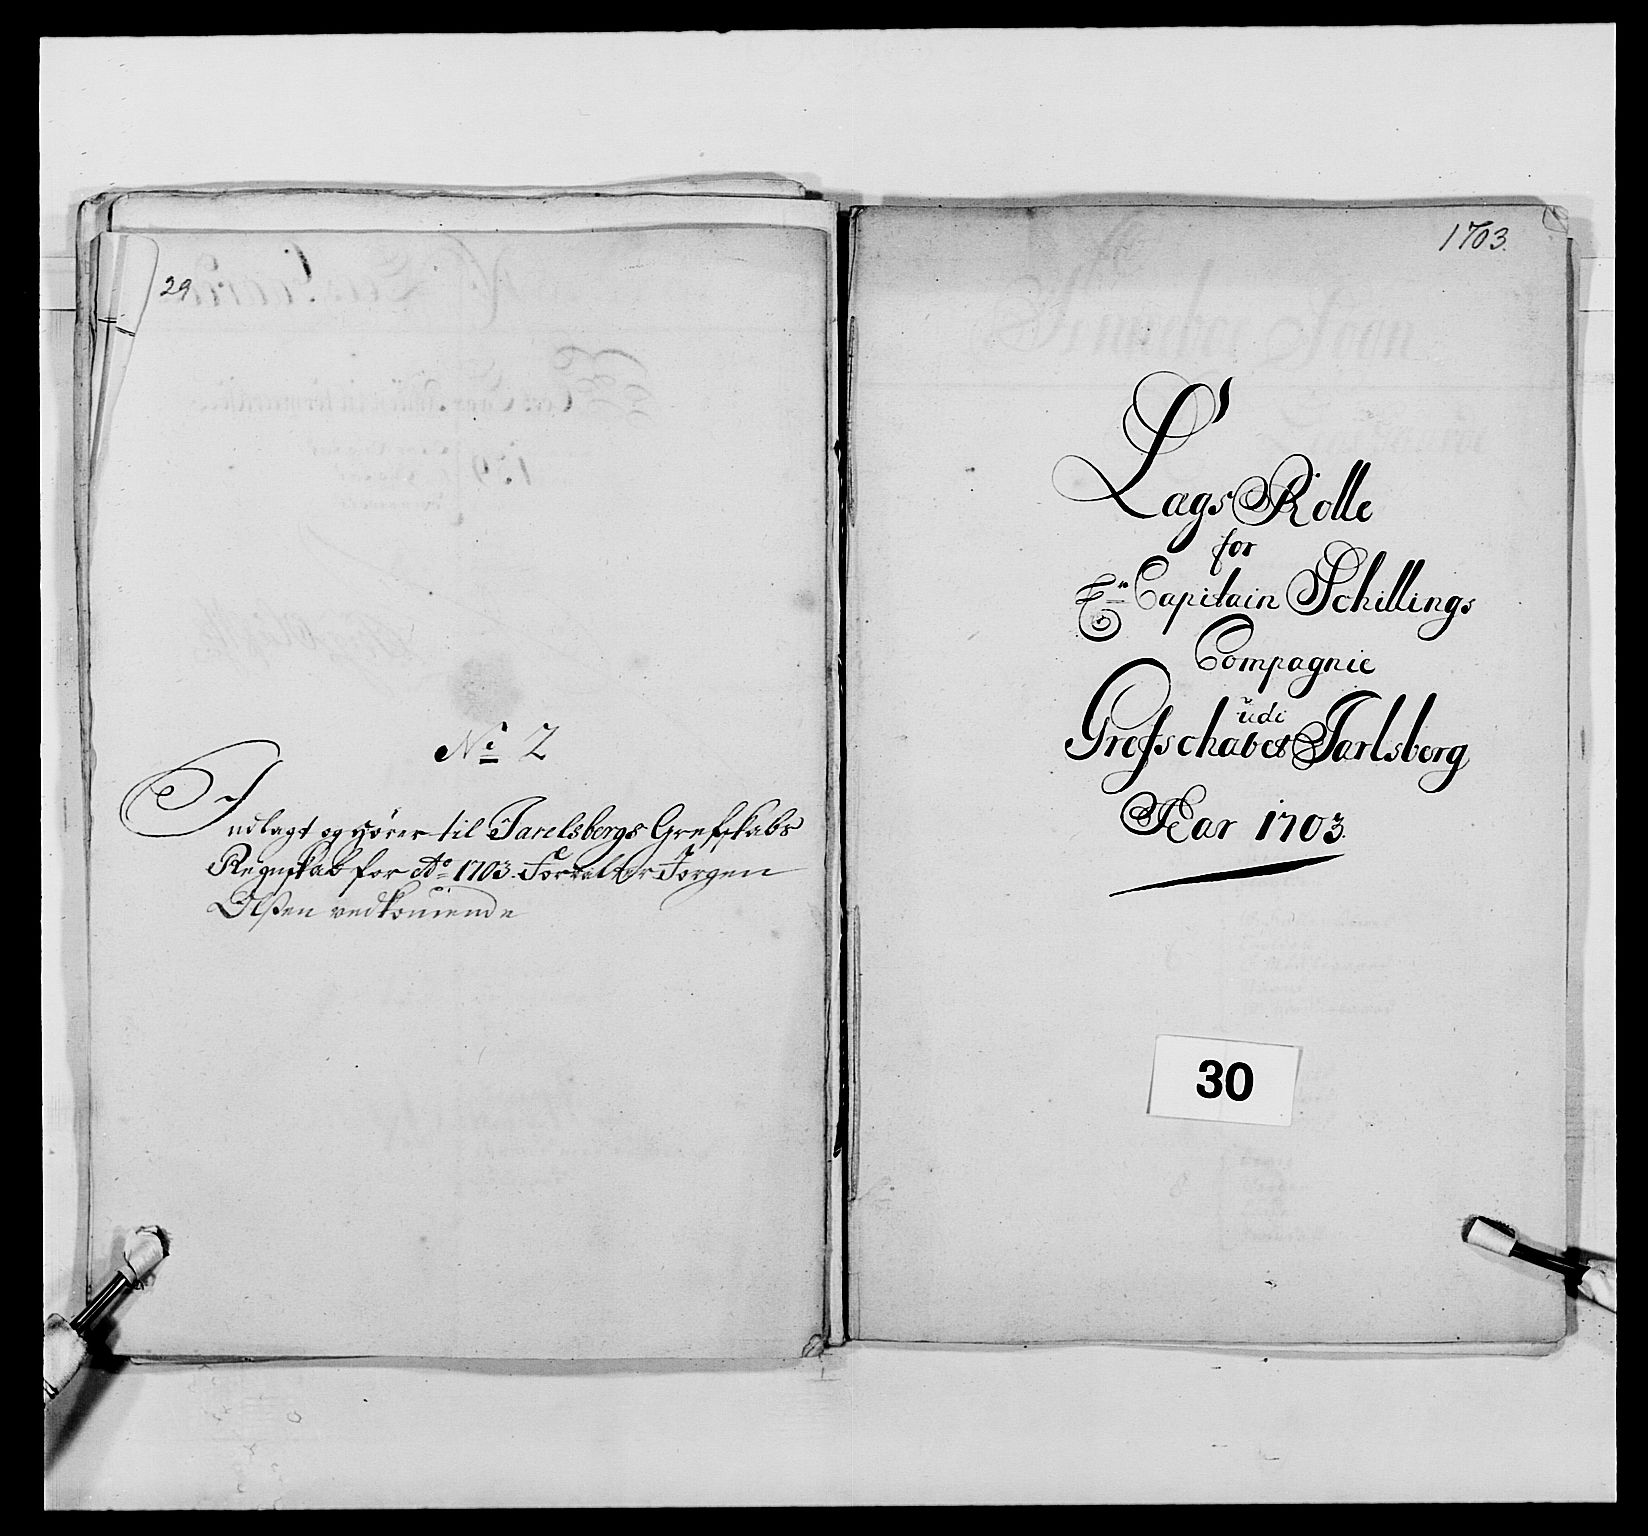 29
No 2
Indlagt og hører til Jarelsbergs Grefskabs
Regnskab for Ao 1703. Forvalter Jørgen
Olßen vedkom̅ende
1703.
Lags Rolle
for
Hr Capitain Schillings
Compagnie
udi
Grefschabet Jarlsberg
Aar 1703.
30